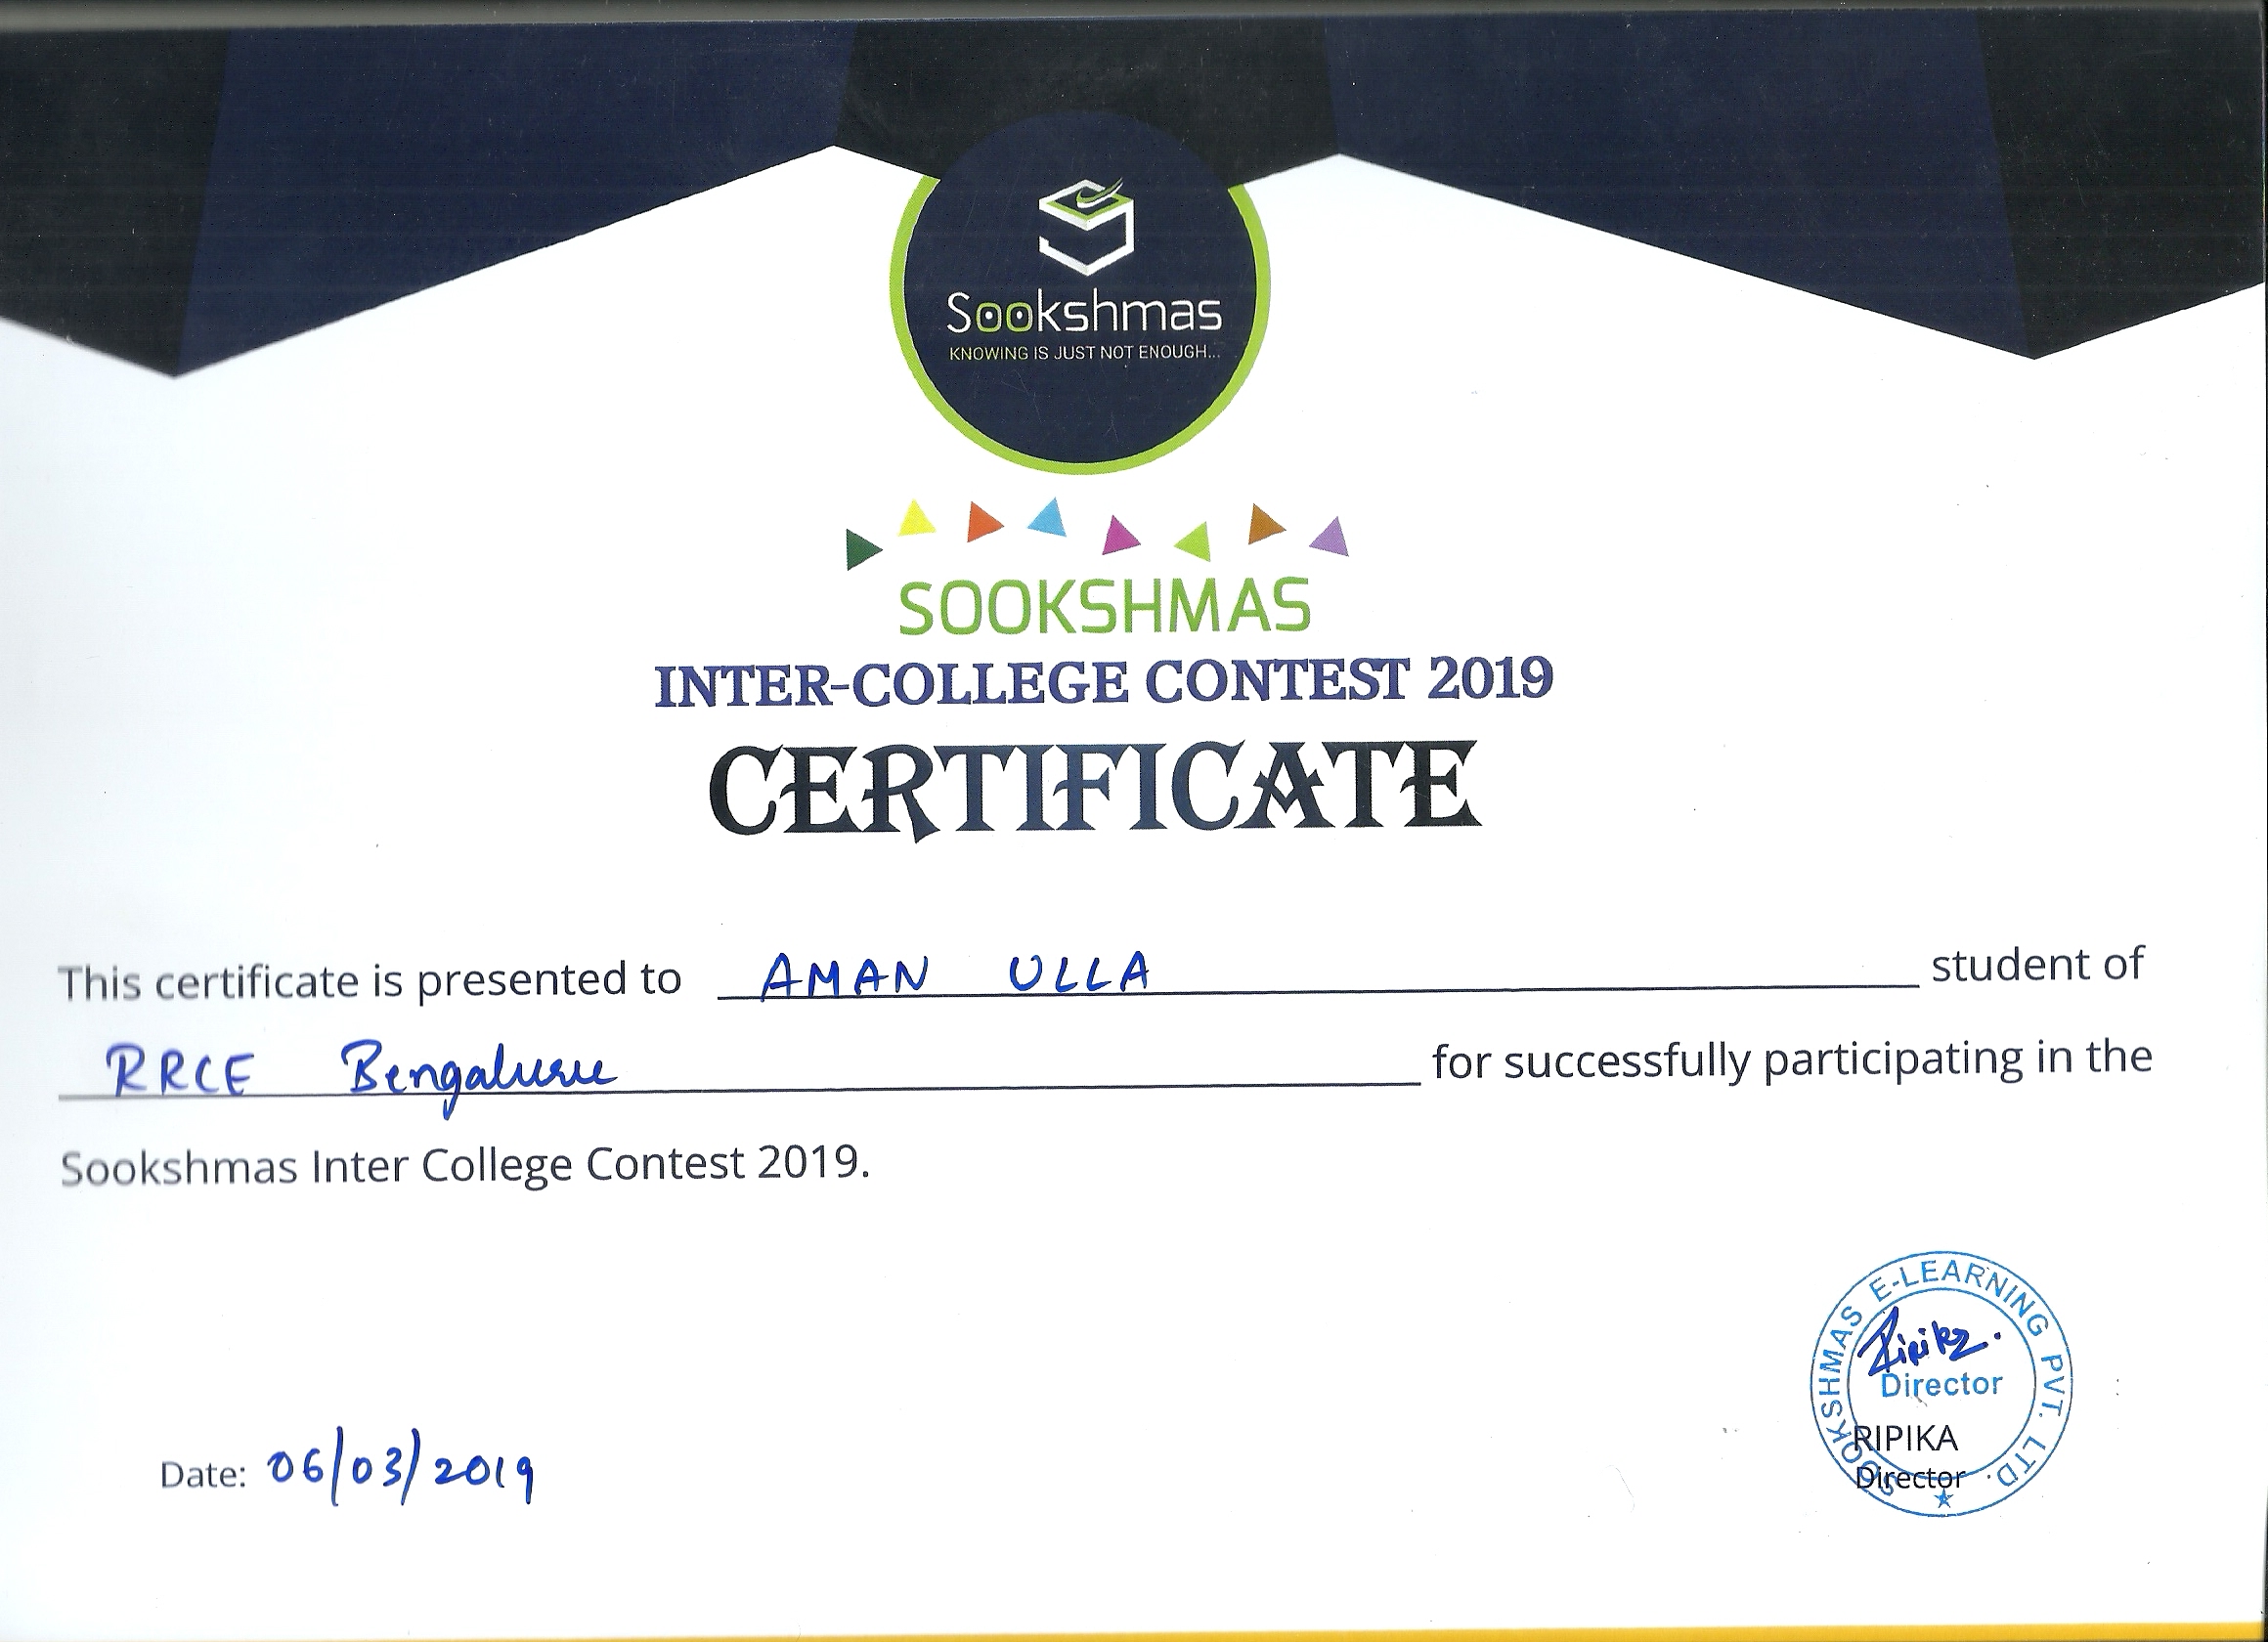 Sookshmas
KNOWING IS JUST NOT ENOUGH...
SOOKSHMAS
INTER-COLLEGE CONTEST 2019
CERTIFICATE
This certificate is presented to AMAN ULLA student of
RRCE Bengaluru for successfully participating in the
Sookshmas Inter College Contest 2019.
SOOKSHMAS E-LEARNING PVT. LTD.
Ripika
Director
RIPIKA
Director
Date: 06/03/2019